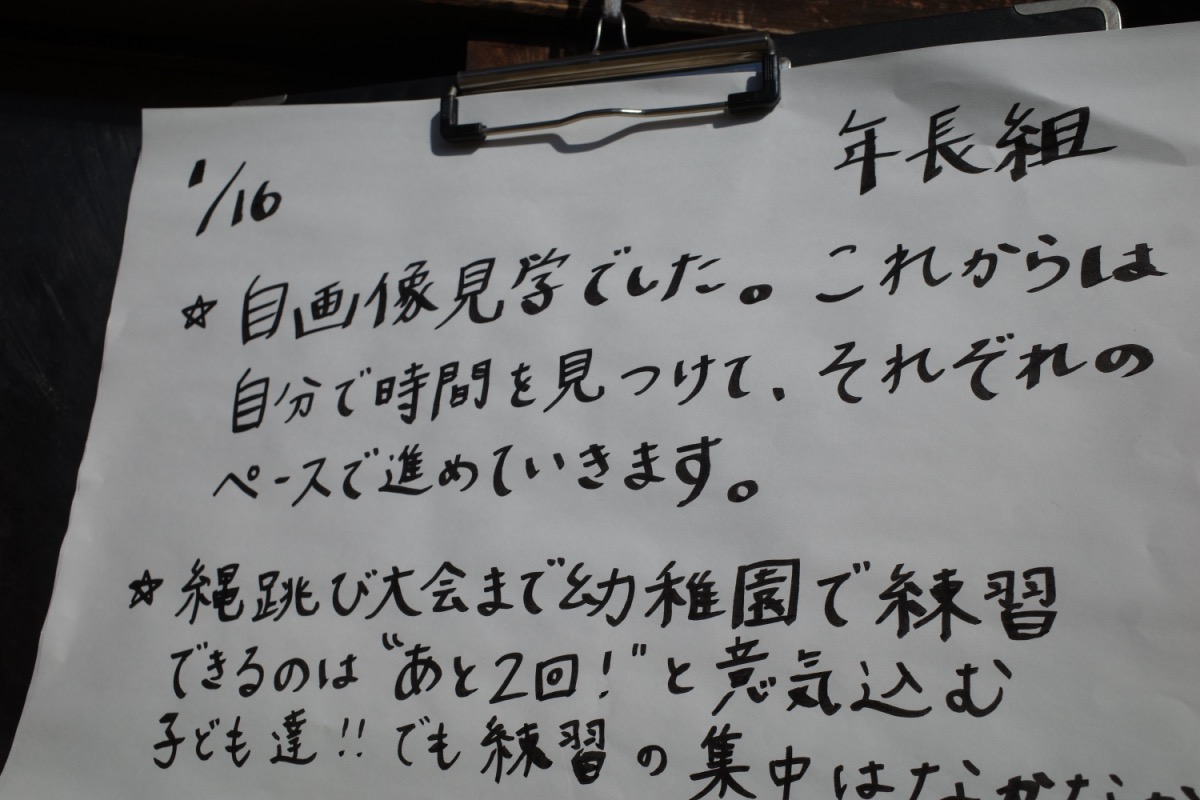 1/16
年長組
☆ 自画像見学でした。これからは
自分で時間を見つけて、それぞれの
ペースで進めていきます。
☆ 縄跳び大会まで幼稚園で練習
できるのは“あと2回!”と意気込む
子ども達!!でも練習の集中はなかなか